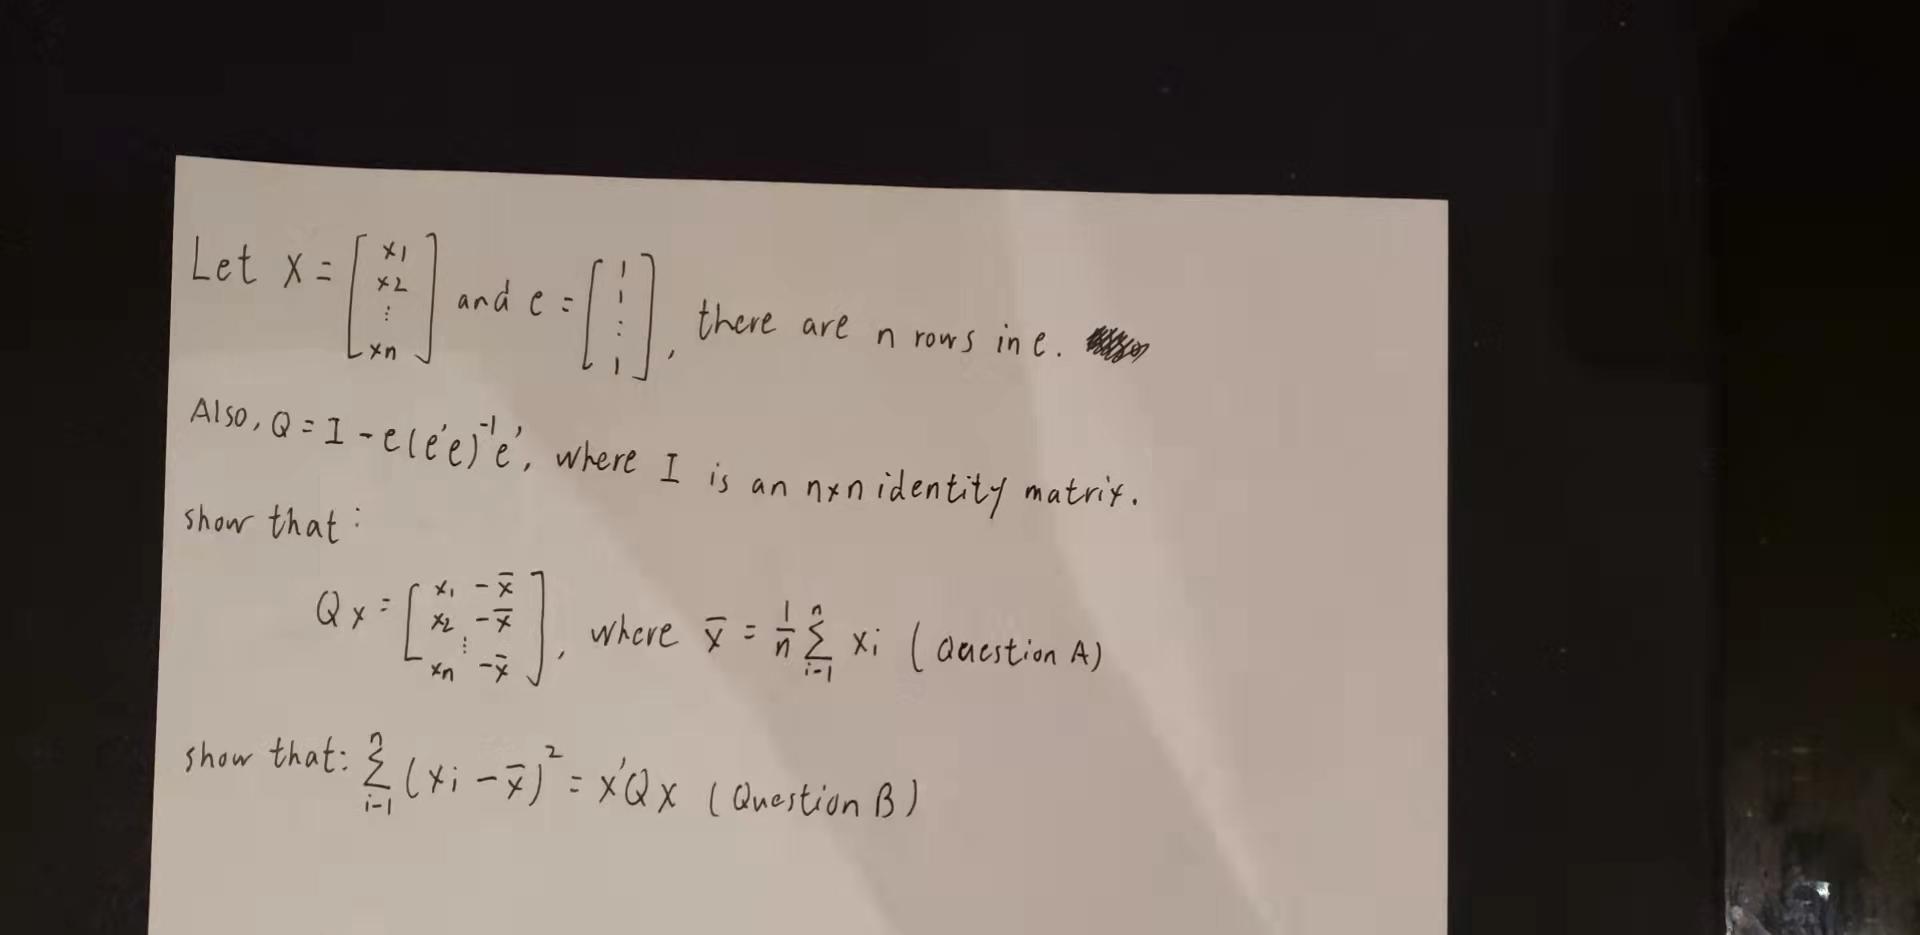 Let X = [ x1 x2 ⋮ xn ] and e = [ 1 1 ⋮ 1 ], there are n rows in e.
Also, Q = I - e(e'e)⁻¹e', where I is an n×n identity matrix.
show that:
Qx = [ x₁ - x̄ x₂ - x̄ ⋮ xn - x̄ ], where x̄ = 1/n Σⁿᵢ₋₁ xi (Question A)
show that: Σⁿᵢ₋₁ (xi - x̄)² = x'Qx (Question B)